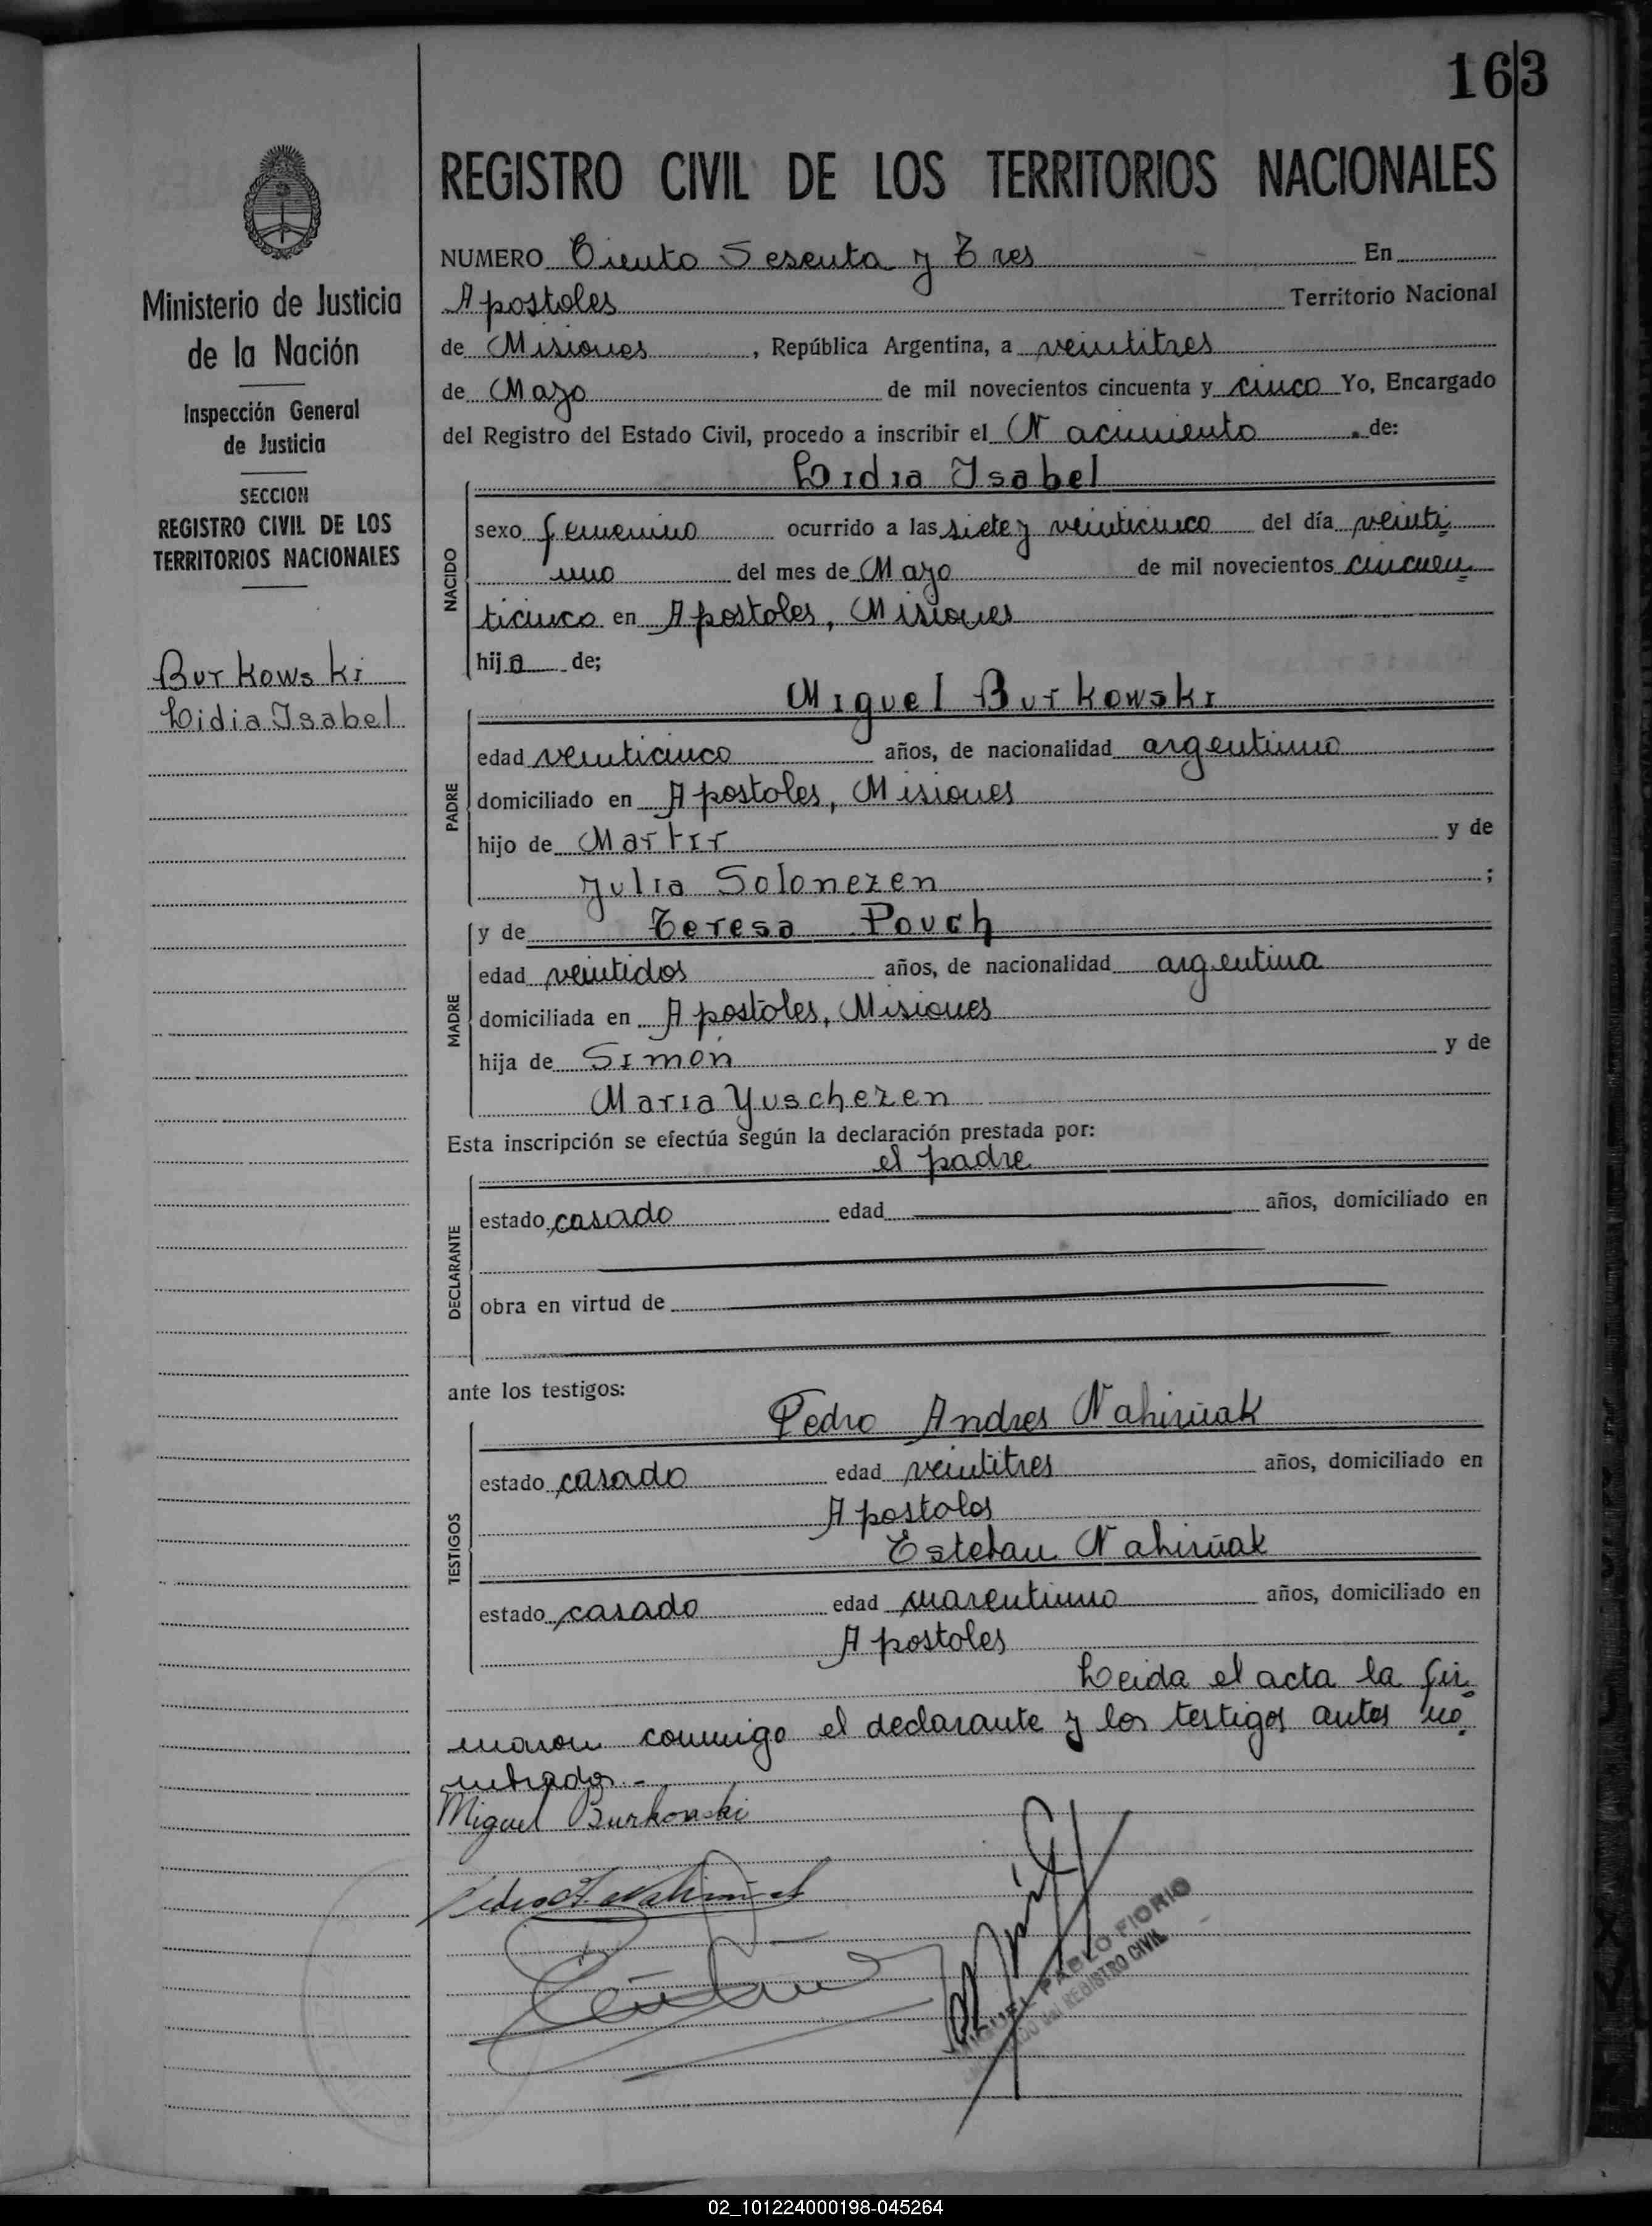 163
REGISTRO CIVIL DE LOS TERRITORIOS NACIONALES
Ministerio de Justicia
de la Nación
Inspección General
de Justicia
SECCION
REGISTRO CIVIL DE LOS
TERRITORIOS NACIONALES
Burkowski
Lidia Isabel
NUMERO Ciento Sesenta y Tres En
Apostoles Territorio Nacional
de Misiones, República Argentina, a veintitres
de Mayo de mil novecientos cincuenta y cinco Yo, Encargado
del Registro del Estado Civil, procedo a inscribir el Nacimiento de:
Lidia Isabel
NACIDO
sexo femenino ocurrido a las siete y veinticinco del día veinti
uno del mes de Mayo de mil novecientos cincuen
ticinco en Apostoles, Misiones
hija de;
Miguel Burkowski
PADRE
edad veinticinco años, de nacionalidad argentino
domiciliado en Apostoles, Misiones
hijo de Martir y de
Julia Solonezen ;
y de Teresa Pouch
MADRE
edad veintidos años, de nacionalidad argentina
domiciliada en Apostoles, Misiones
hija de Simón y de
Maria Yuschezen
Esta inscripción se efectúa según la declaración prestada por:
el padre
DECLARANTE
estado casado edad años, domiciliado en
obra en virtud de
ante los testigos:
Pedro Andres Nahirñak
TESTIGOS
estado casado edad veintitres años, domiciliado en
Apostoles
Esteban Nahirñak
estado casado edad cuarentiuno años, domiciliado en
Apostoles
Leida el acta la fir
maron conmigo el declarante y los testigos antes no
mbrados.-
Miguel Burkowski
MIGUEL PABLO FIORIO
REGISTRO CIVIL
02_101224000198-045264